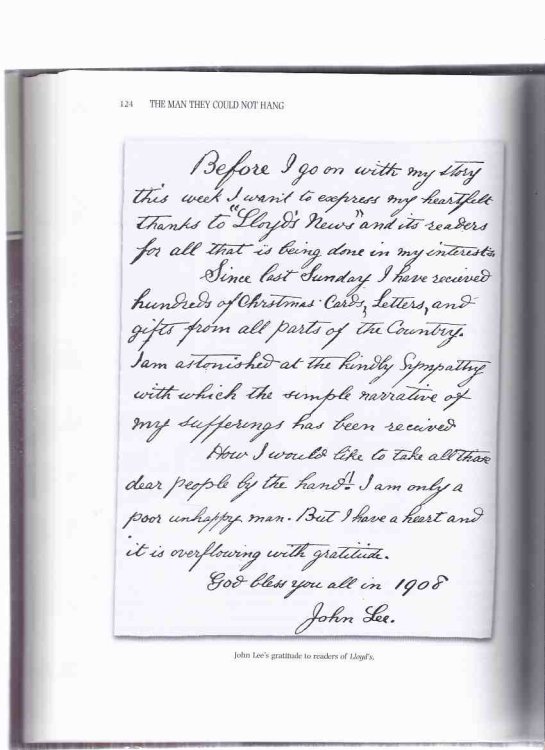 124 THE MAN THEY COULD NOT HANG
Before I go on with my story
this week I want to express my heartfelt
thanks to "Lloyd's News" and its readers
for all that is being done in my interests.
Since last Sunday I have recieved
hundreds of Christmas Cards, Letters, and
gifts from all parts of the Country.
I am astonished at the kindly Sympathy
with which the simple narrative of
my sufferings has been received
How I would like to take all those
dear people by the hand! I am only a
poor unhappy man. But I have a heart and
it is overflowing with gratitude.
God bless you all in 1908
John Lee.
John Lee's gratitude to readers of Lloyd's.